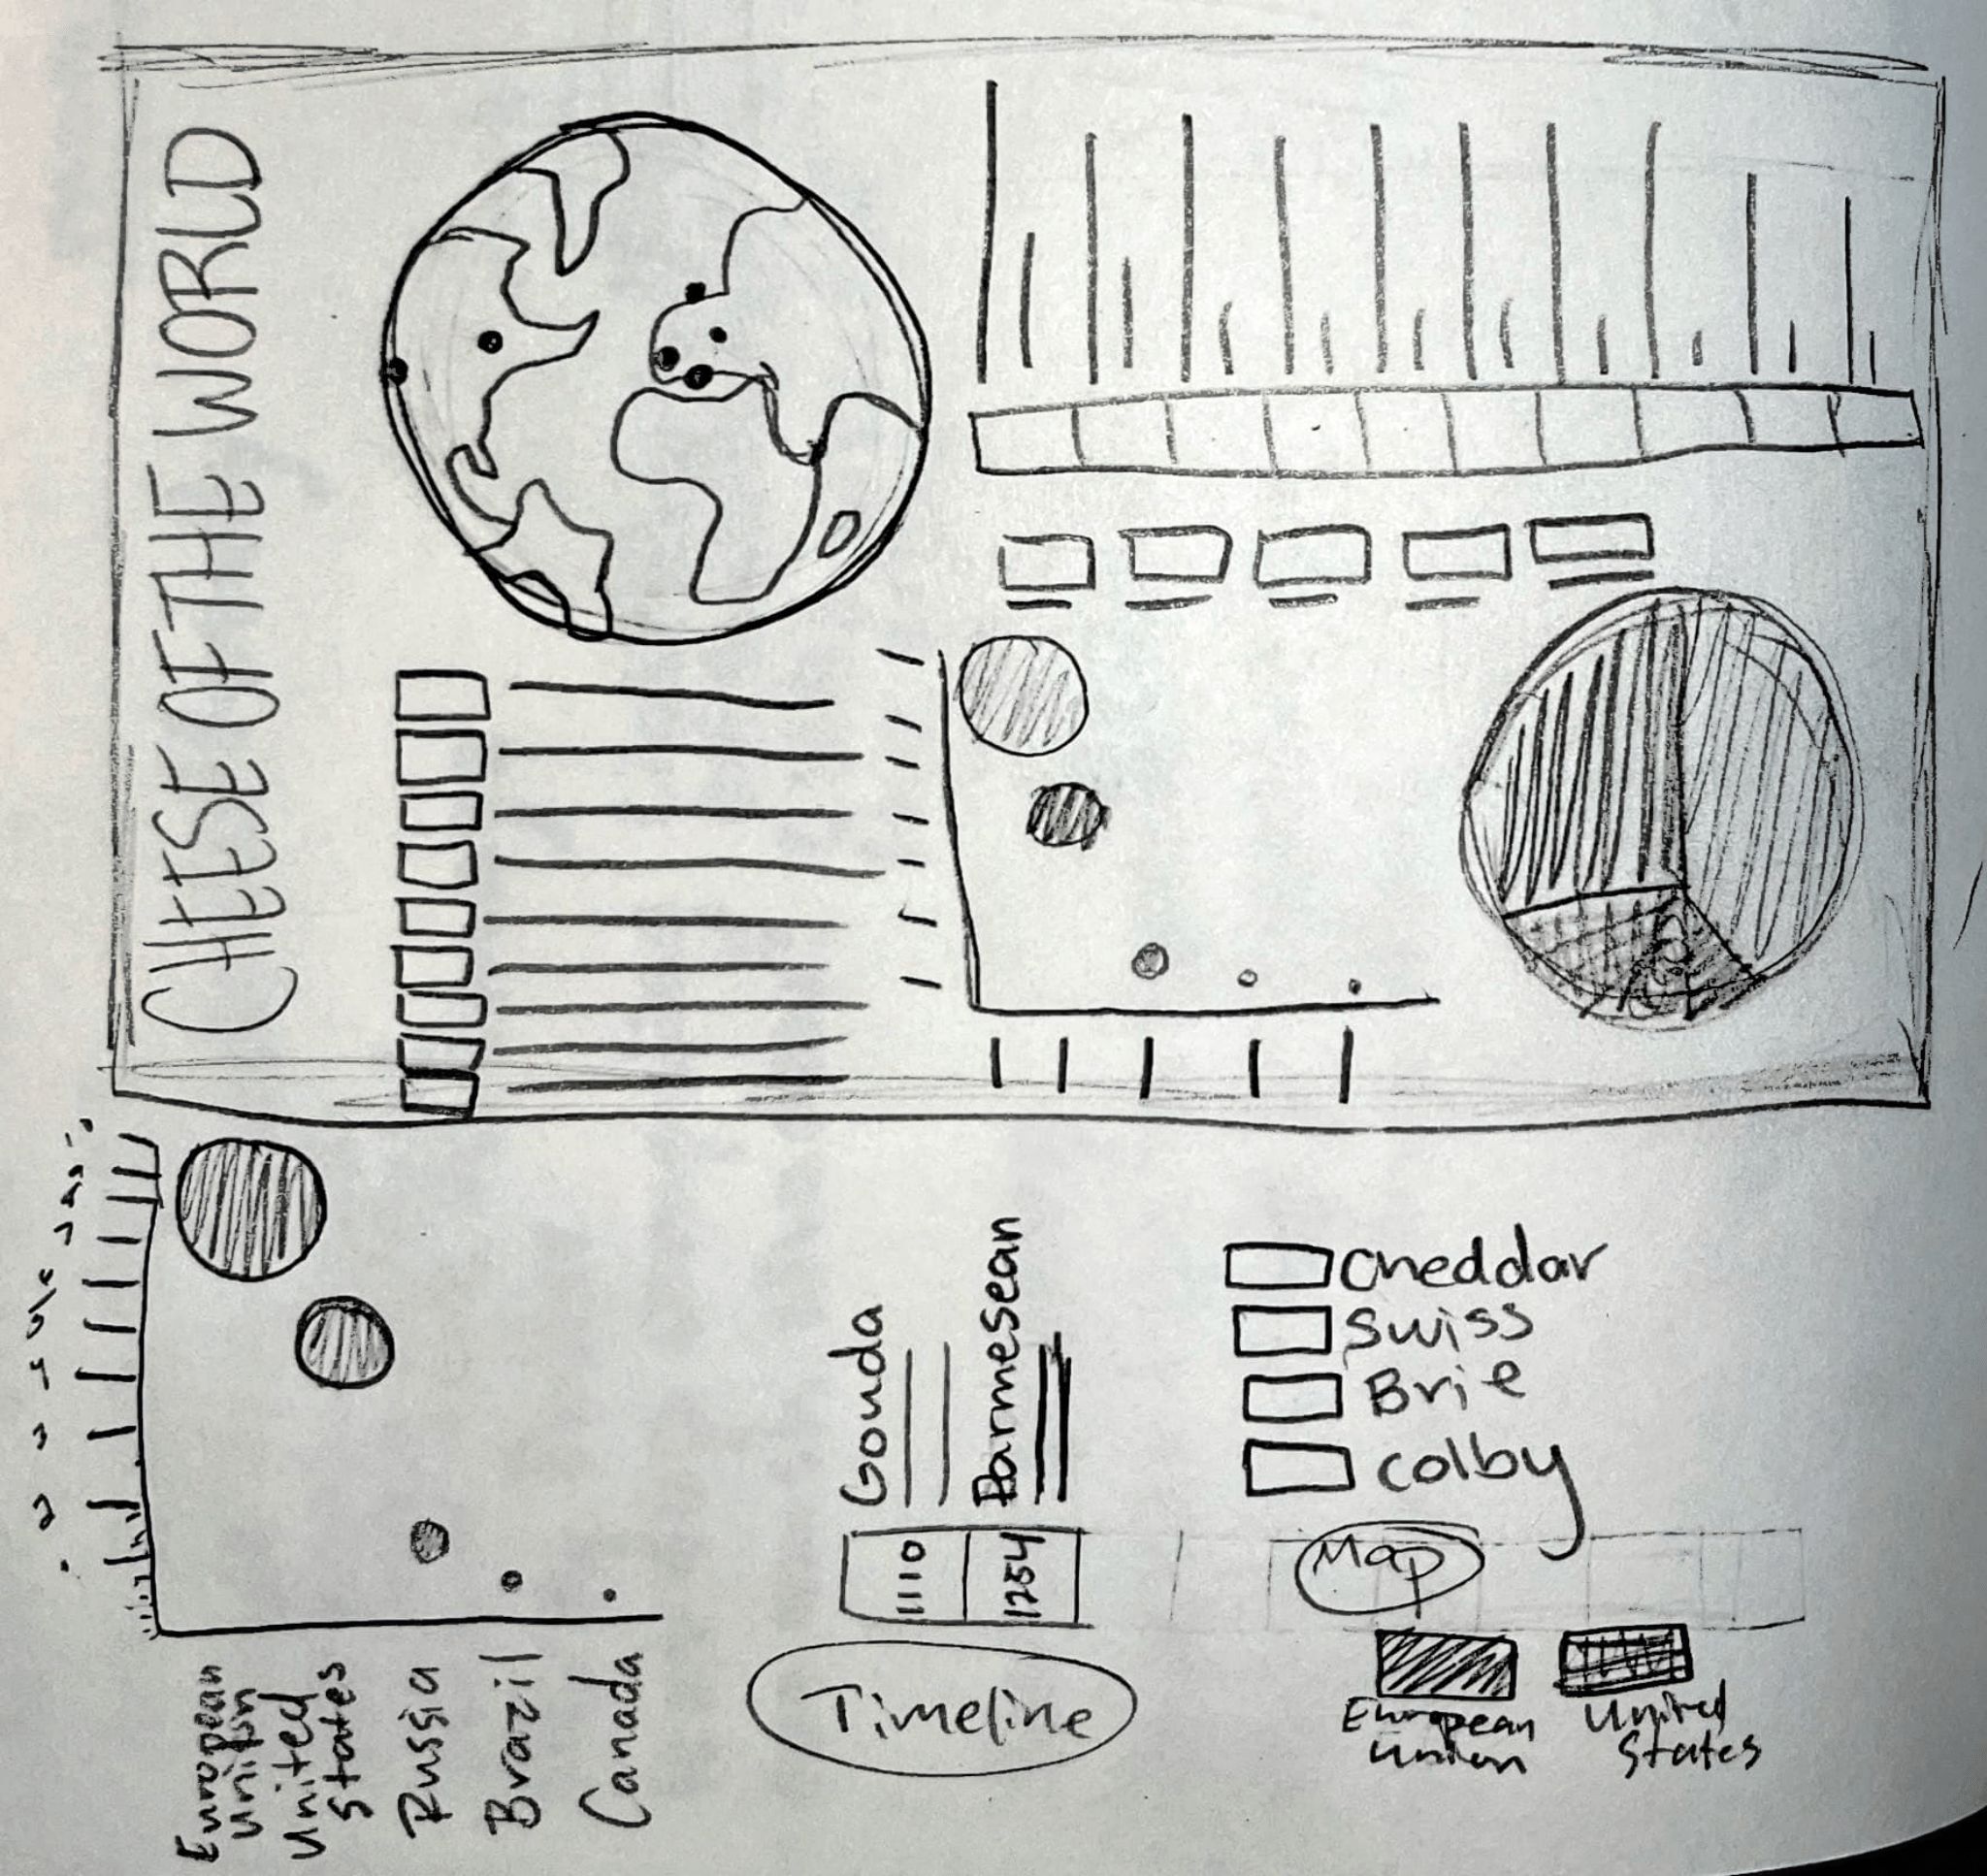 CHEESE OF THE WORLD
Gouda
Parmesean
1110
1254
Timeline
Cheddar
Swiss
Brie
Colby
Map
European
Union
United
States
2
3
4
7
European
Union
United
States
Russia
Brazil
Canada